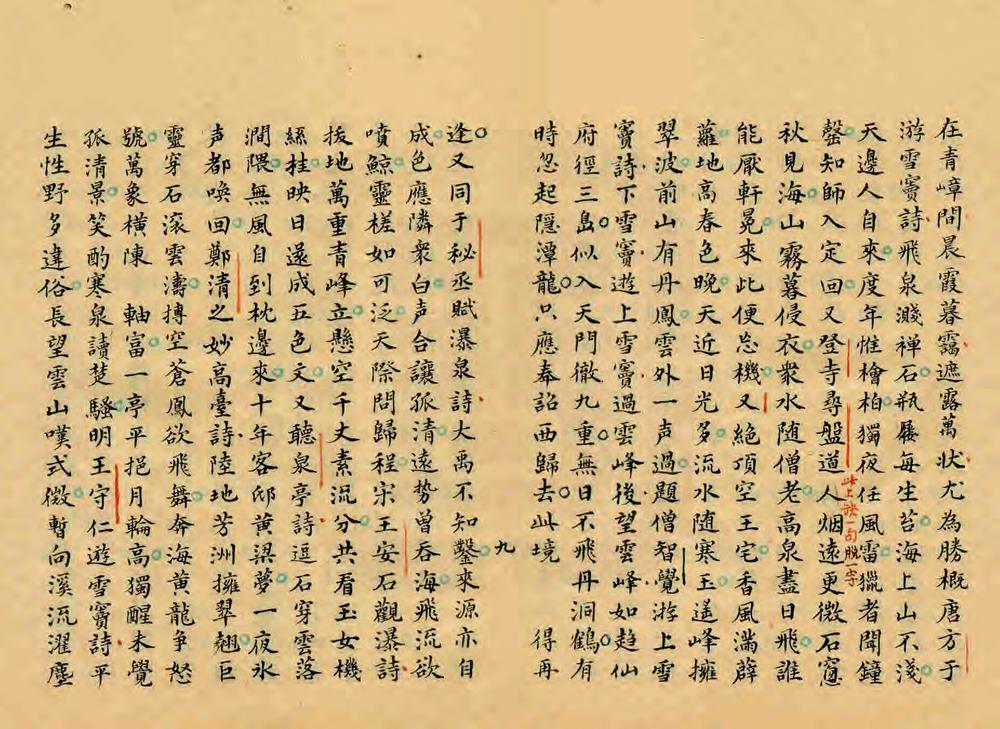 在青嶂間晨霞暮靄遮露萬狀尤為勝概唐方于
游雪竇詩飛泉濺禅石瓶屨每生苔海上山不淺
天邊人自來度年惟檜柏獨夜任風雷獵者聞鐘
罄知師入定回又登寺尋盤道人烟遠更微石窓
此上訣一句脱一字
秋見海山霧暮侵衣衆水随僧老高泉盡日飛誰
能厭軒冕來此便忘機又絕頂空王宅香風滿薜
蘿地高春色晚天近日光多流水随寒玉遥峰擁
翠波前山有丹鳳雲外一声過題僧智覺游上雪
竇詩下雪竇遊上雪竇過雲峰後望雲峰如趋仙
府徑三島似入天門徹九重無日不飛丹洞鶴有
時忽起隠潭龍只應奉詔西歸去此境　　得再
九
逢又同于秘丞賦瀑泉詩大禹不知鑿來源亦自
成色應隣衆白声合讓孤清遠势曾吞海飛流欲
噴鯨靈槎如可泛天際問歸程宋王安石觀瀑詩
拔地萬重青峰立懸空千丈素流分共看玉女機
絲桂映日還成五色文又聽泉亭詩逗石穿雲落
澗隈無風自到枕邊來十年客邸黄梁夢一夜氷
声都喚回鄭清之妙高臺詩陸地芳洲擁翠翹巨
靈穿石滚雲濤摶空蒼鳳欲飛舞奔海黄龍争怒
號萬象横陳　軸富一亭平挹月輪高獨醒未覺
孤清景笑酌寒泉讀楚騷明王守仁遊雪竇詩平
生性野多違俗長望雲山嘆式微暫向溪流濯塵